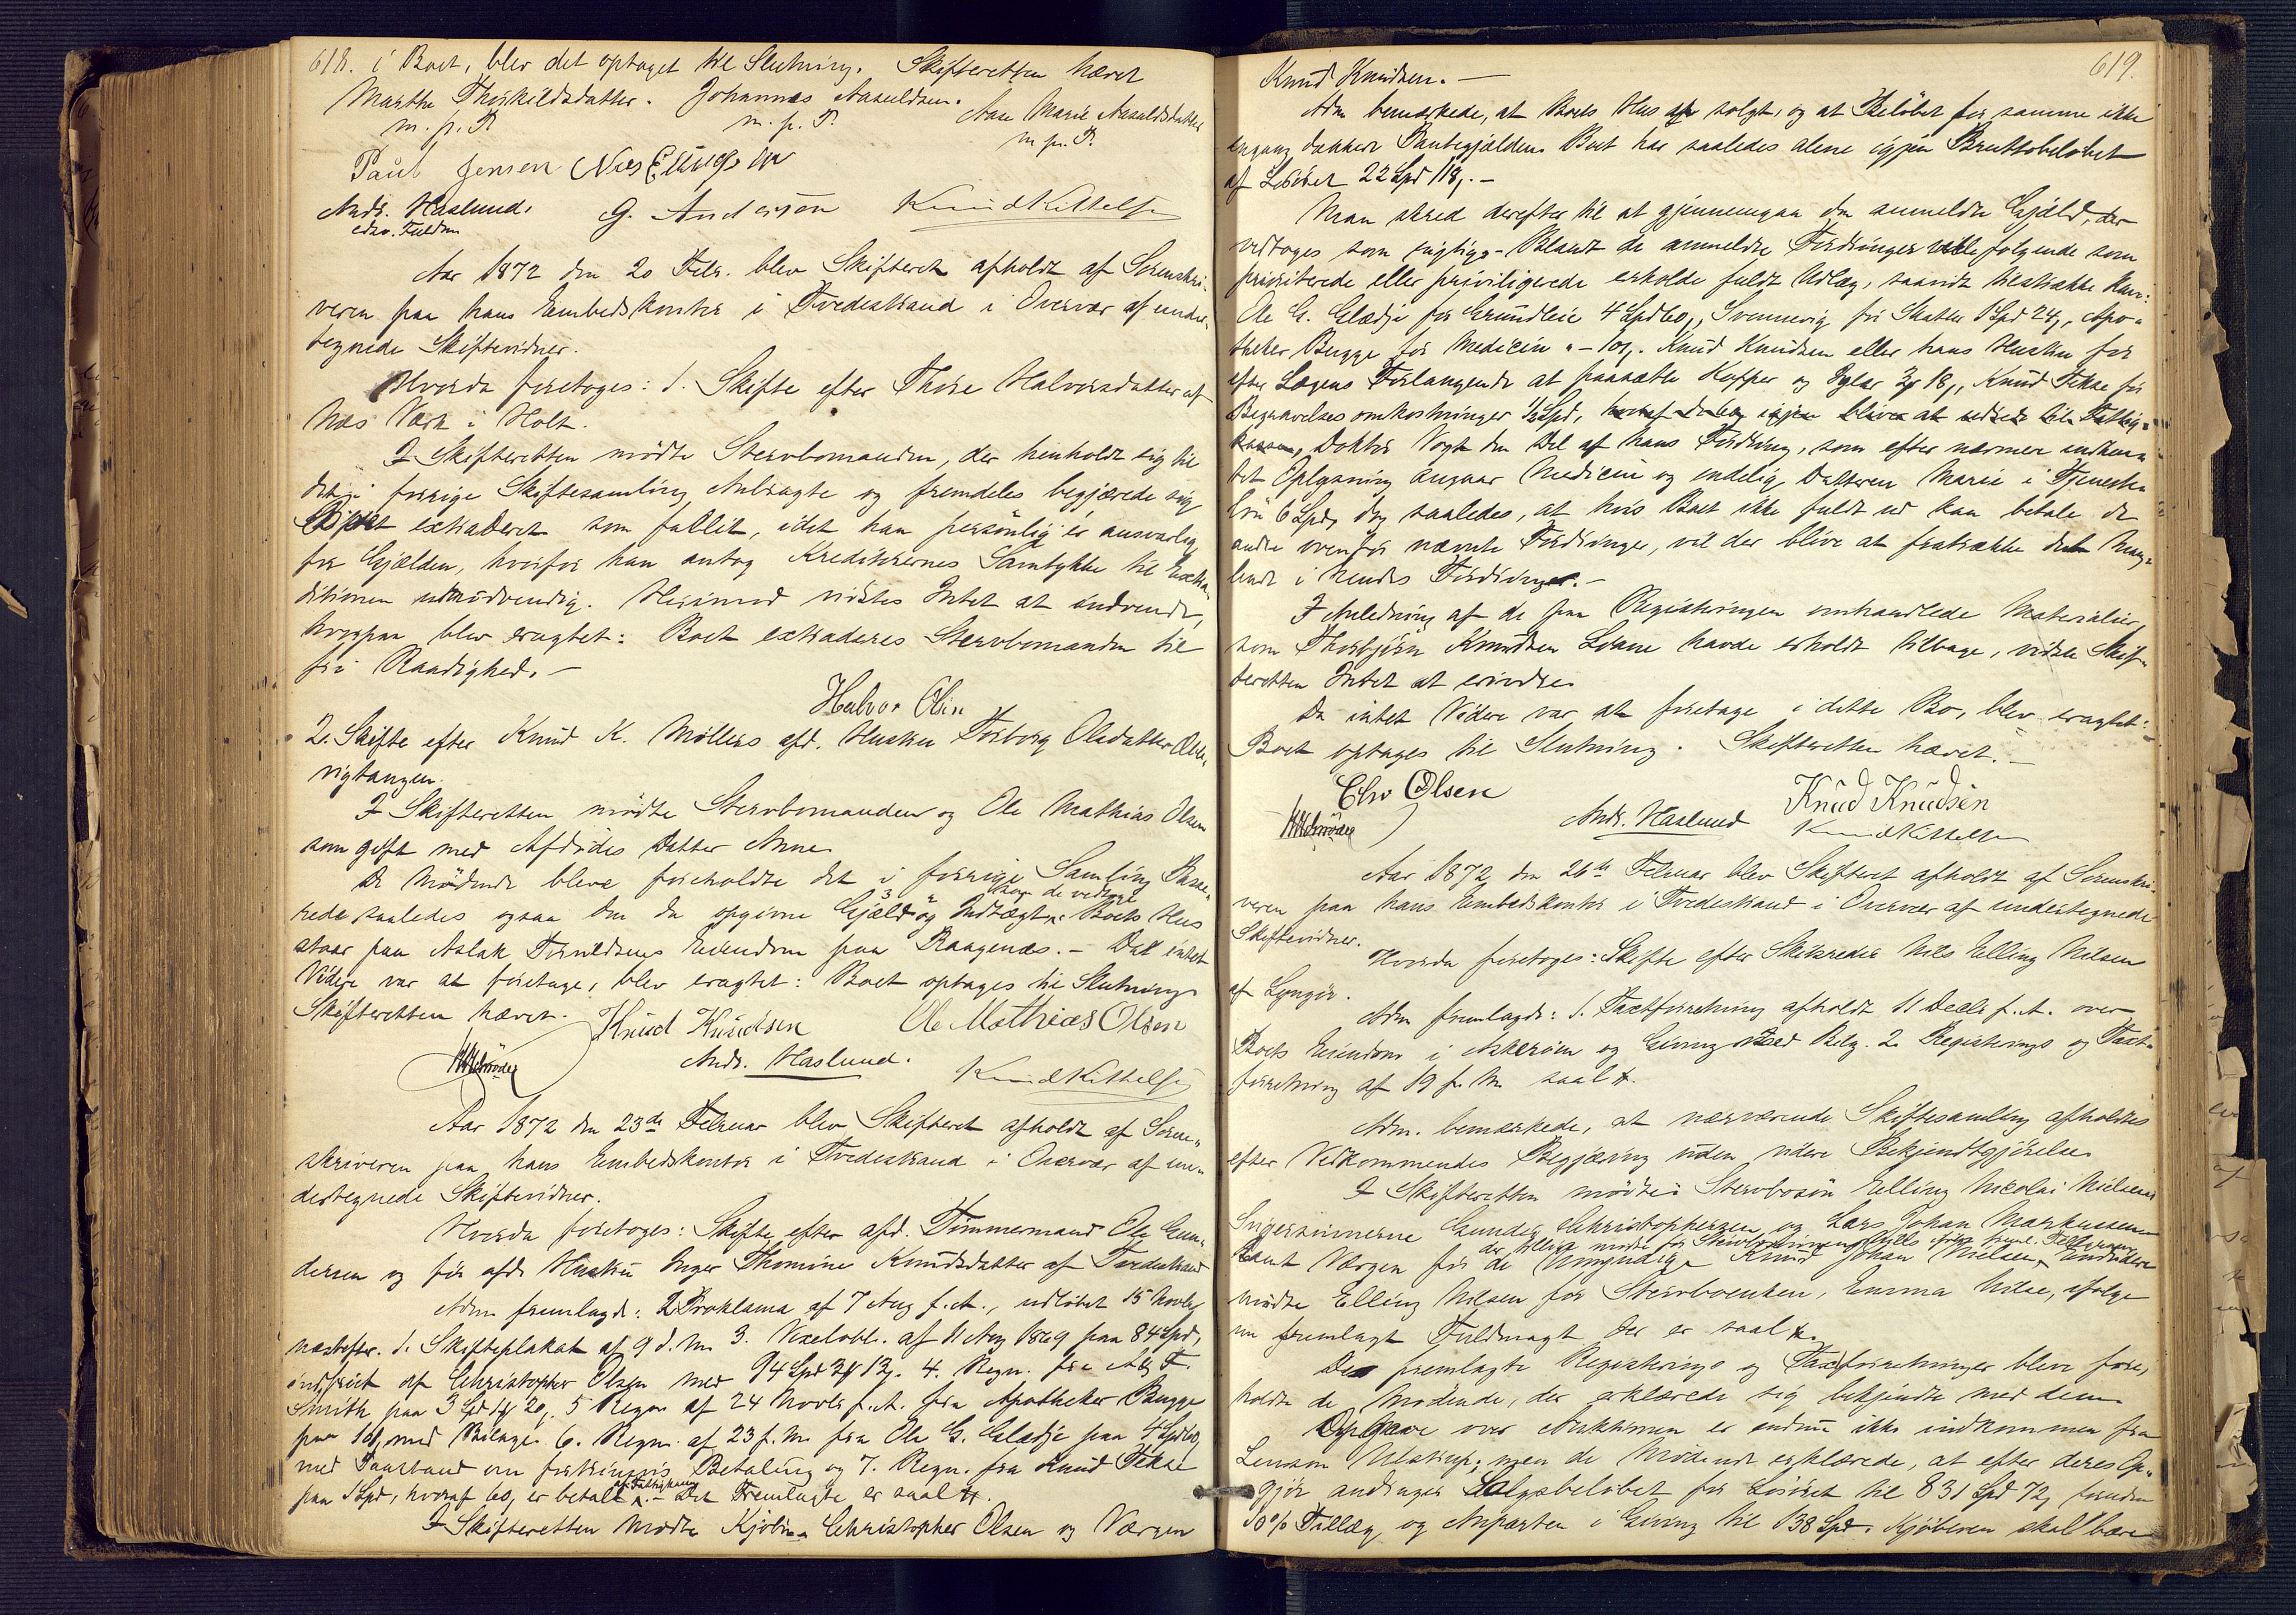 618. i Boet, blev det optaget til Slutning. Skifteretten hævet
Marthe Thorkildsdatter. Johannes Aasuldsen. Aane Marie Aasuldsdatter
m. p. P. m. p. P. m. p. P.
Paul Jensen Niels
Andr. Haslund. G. Anderson Knud Kittelsen
edsv. Fuldm
Aar 1872 den 20 Febr. blev Skifteret afholdt af Sorenskri-
veren paa hans Embedskontor i Tvedestrand i Overvær af under-
tegnede Skiftevidner.
Hvorda foretoges: 1. Skifte efter Thore Halvorsdatter af
Næs Værk i Holt.
I Skifteretten mødte Stervbomanden, der henholdt sig til
det i forrige Skiftesamling Anbragte og fremdeles begjærede sig
Boet extraderet som fallit, idet han personlig er ansvarlig
for Gjælden, hvorfor han antog Kreditorernes Samtykke til Extra-
ditionen unødvendig. Herimod vidstes Intet at indvende,
hvorpaa blev eragtet: Boet extraderes Stervbomanden til
fri Raadighed. -
Halvor Olsen
2. Skifte efter Knud K. Møllers afd. Hustru Torborg Olsdatter
vigtangen.
I Skifteretten mødte Stervbomanden og Ole Mathias Olsen
som gift med Afdødes Datter Anne.
De Mødende bleve foreholdte det i forrige Samling Passe-
rede saaledes ogsaa den da opgivne Gjæld og Indtægt, som de vedtog. Boets Hus
staar paa Aslak Torvildsens Eiendom paa Raagenæs. - Da intet
Videre var at foretage, blev eragtet: Boet optages til Slutning.
Skifteretten hævet. Knud Knudsen Ole Mathias Olsen
Andr. Haslund. Knud Kittelsen
Aar 1872 den 23de Februar blev Skifteret afholdt af Soren-
skriveren paa hans Embedskontor i Tvedestrand i Overvær af un-
dertegnede Skiftevidner.
Hvorda foretoges: Skifte efter afd. Tømmermand Ole Gun-
dersen og før afd. Hustru Inger Thomine Knudsdatter af Tvedestrand
Adm. fremlagde: 2 Proklama af 7 Aug f. A., udløbet 15 Novbr
næstefter. 1. Skifteplakat af 9 d. M. 3. Vexelobl. af 11 Aug 1869 paa 84 Spd,
indfriet af Christopher Olsen med 94 Spd 3 ort 13 s. 4. Regn. fra A. F.
Smith paa 3 Spd 1 ort 20 s. 5 Regn. af 24 Novbr f. A. fra Apotheker Bugge
paa 101 s med Bilage. 6. Regn. af 23 f. M. fra Ole G. Gladje paa 4 Spd 60,
med Paastand om fortrinsvis Betaling og 7. Regn. fra Knud Fekse
paa 1 Spd, hvoraf 60 s er betalt af Fattigkassen. - Det Fremlagte er saal.
I Skifteretten Mødte Kjøbm. Christopher Olsen og Værgen
619.
Knud Knudsen. -
Adm bemærkede, at Boets Hus er solgt, og at Beløbet for samme ikke
engang dækkede Pantegjælden. Boet har saaledes alene igjen Bruttobeløbet
af Løsøret 22 Spd 118 s. -
Man skred derefter til at gjennemgaa den anmeldte Gjæld, der
vedtoges som rigtig. - Blandt de anmeldte Fordringer ville følgende som
prioriterede eller priviligerede erholde fuldt Udlæg, saavidt tilstrække kan:
Ole G. Glædje for Grundleie 4 Spd 60 s, Svennevig for Skatter 1 Spd 24 s, Apo-
theker Bugge for Medicin " - 101 s. Knud Knudsen eller hans Hustru for
efter Lægens Forlangende at paasætte Kopper og Igler 3 ort 18 s, Knud Fekse for
Begravelsesomkostninger 1/2 Spd, hvoraf de 60 s igjen bliver at udrede til Fattig-
kassen, Doktor Vogt den Del af hans Fordring, som efter nærmere indhen-
tet Oplysning angaar Medicin og endelig Datteren Marie i Tjeneste-
løn 6 Spd, dog saaledes, at hvis Boet ikke fuldt ud kan betale de
andre ovenfor nævnte Fordringer, vil der blive at fratrække det Mang-
lende i hendes Fordringer. -
I Anledning af de paa Registreringen omhandlede Materialier,
som Thorbjørn Knudsen havde erholdt tilbage, vidste Skif-
teretten Intet at erindre.
Da intet Videre var at foretage i dette Bo, blev eragtet:
Boet optages til Slutning. Skifteretten hævet. -
Chr Olsen Knud Knudsen
Andr. Haslund Knud Kittelsen
Aar 1872 den 26de Februar blev Skifteret afholdt af Sorenskri-
veren paa hans Embedskontor i Tvedestrand i Overvær af undertegnede
Skiftevidner.
Hvorda foretoges: Skifte efter Skibsreder Nils Elling Nilsen
af Lyngør.
Adm fremlagde: 1. Taxtforretning afholdt 11 Decbr f. A. over
Boets Eiendom i Askerøen og Giving med Bilg. 2. Registrerings og Taxt-
forretning af 19 f. M. saal.
Adm. bemærkede, at nærværende Skiftesamling afholdtes
efter Vedkommendes Begjæring uden videre Bekjendtgjørelse.
I Skifteretten mødte: Stervbosøn Elling Nicolai Nielsen
Svigersønnerne Gunder Christophersen og Lars Johan Markussen
der tillige mødte for Stervbosønnen Nils ifølge freml. Fuldmagt
samt Værgen for de Umyndige Knud Johan Nielsen, Endvidere
mødte Elling Nilsen for Stervboenken, Emma Nilse, ifølge
en fremlagt Fuldmagt der er saal.
De fremlagte Registrerings og Taxtforretninger bleve fore-
holdte de Mødende, der erklærede sig bekjendte med dem.
Opgave over Auktionen er endnu ikke indkommen fra
Lensm Ulstrup; men de Mødende erklærede, at efter deres Op-
gjør andrager Salgsbeløbet for Løsøret til 831 Spd 72 s foruden
10% Tillæg og Anparten i Giving til 138 Spd. Kjøberen skal bære